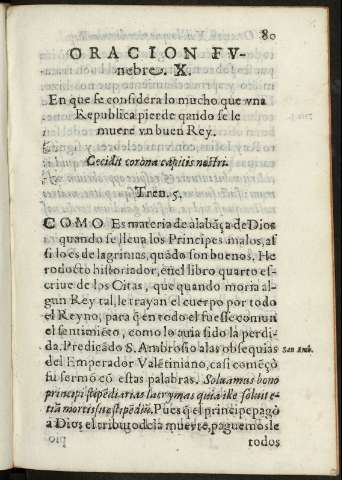 80
ORACION FV-
nebre. X.
En que se considera lo mucho que vna
Republica pierde qando se le
muere vn buen Rey.
Cecidit corona capitis nostri.
Tren. 5.
COMO Es materia de alabãça de Dios
quando se lleua los Principes malos, as
si lo es de lagrimas, quãdo son buenos. He
rodoto historiador, en el libro quarto es-
criue de los Citas, que quando moria al-
gun Rey tal, le trayan el cuerpo por todo
el Reyno, para q̃ en todo el fuesse comun
el sentimiẽto, como lo auia sido la perdi-
da. Predicãdo S. Ambrosio a las obsequias
San Amb.
del Emperador Valẽtiniano, casi començò
su sermõ cõ estas palabras. Soluamus bono
principi stipẽdiarias lacrymas quia ille soluit e-
tiã mortis suæ stipẽdiũ. Pues q̃ el principe pagò
a Dios el tributo de la muerte, paguemosle
todos